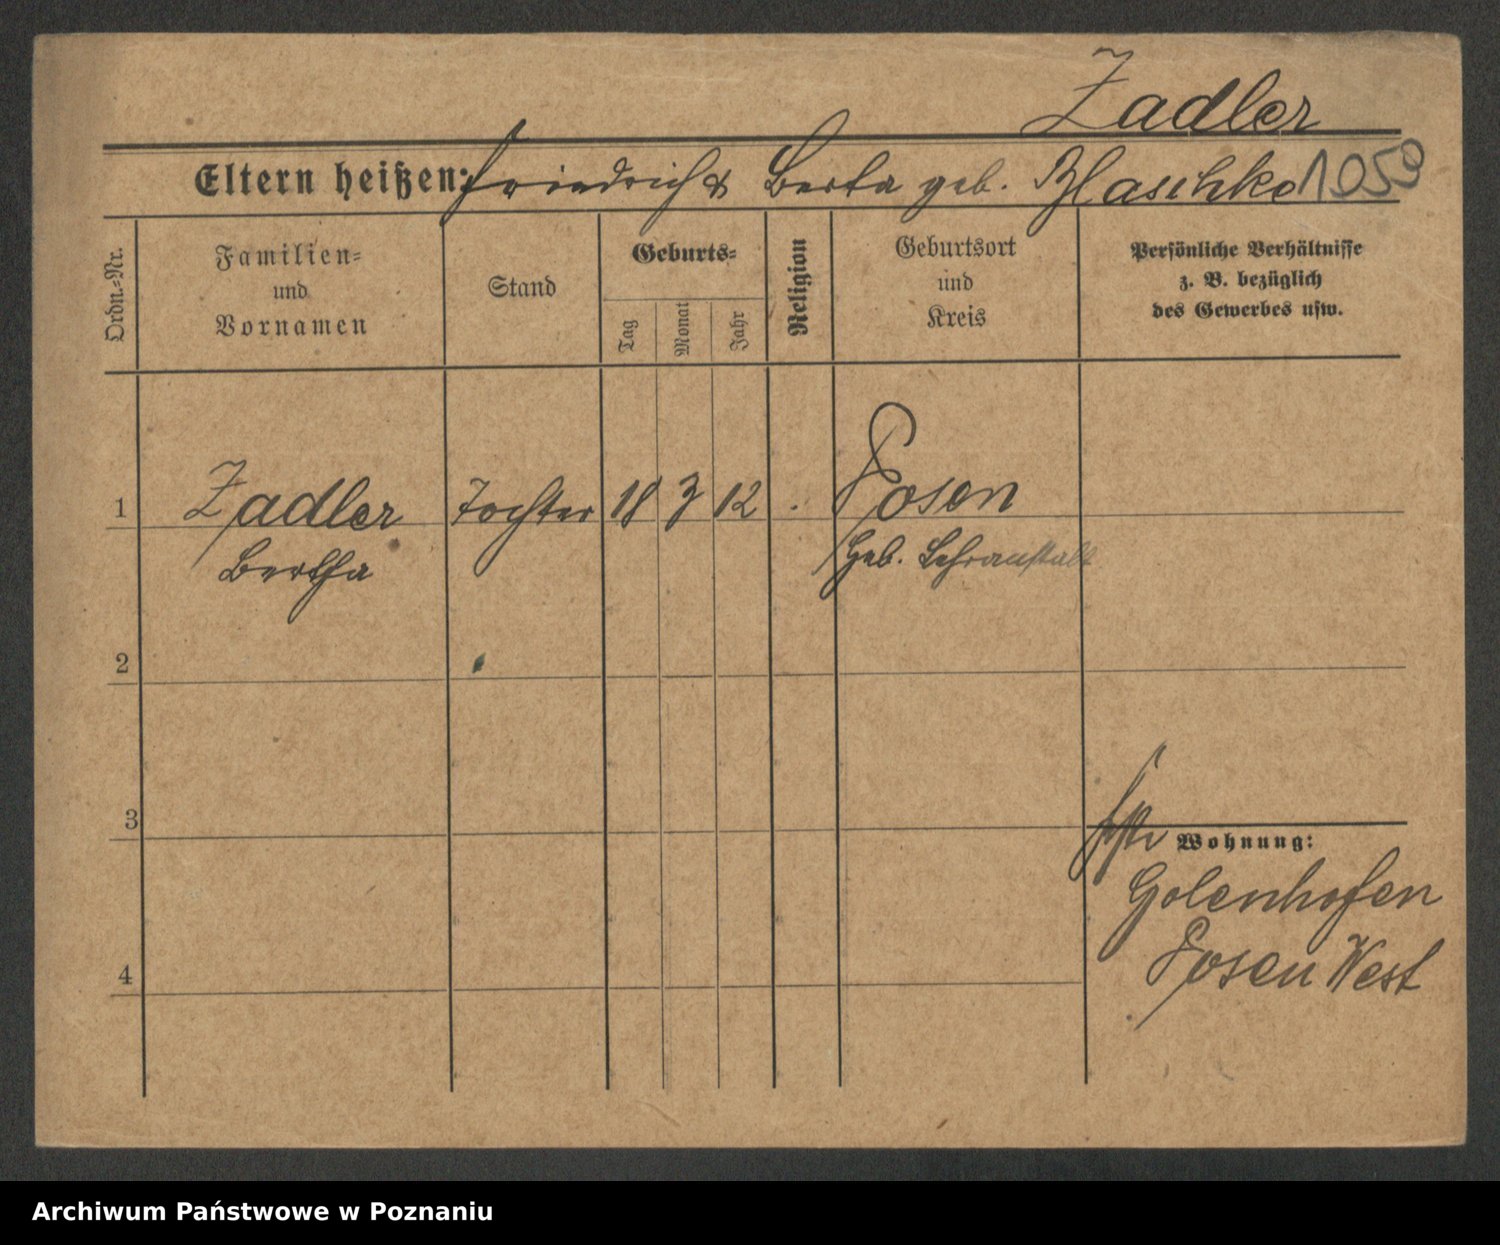 Zadler
Eltern heißen: Friedrich & Berta geb. Blaschke 1059
Ordn.-Nr.
Familien-
und
Vornamen
Stand
Geburts-
Tag
Monat
Jahr
Religion
Geburtsort
und
Kreis
Persönliche Verhältnisse
z. B. bezüglich
des Gewerbes usw.
1 Zadler Tochter 18 3 12 . Posen
Bertha Geb. Lehranstalt
2
3
Wohnung:
Golenhofen
4 Posen West
Archiwum Państwowe w Poznaniu